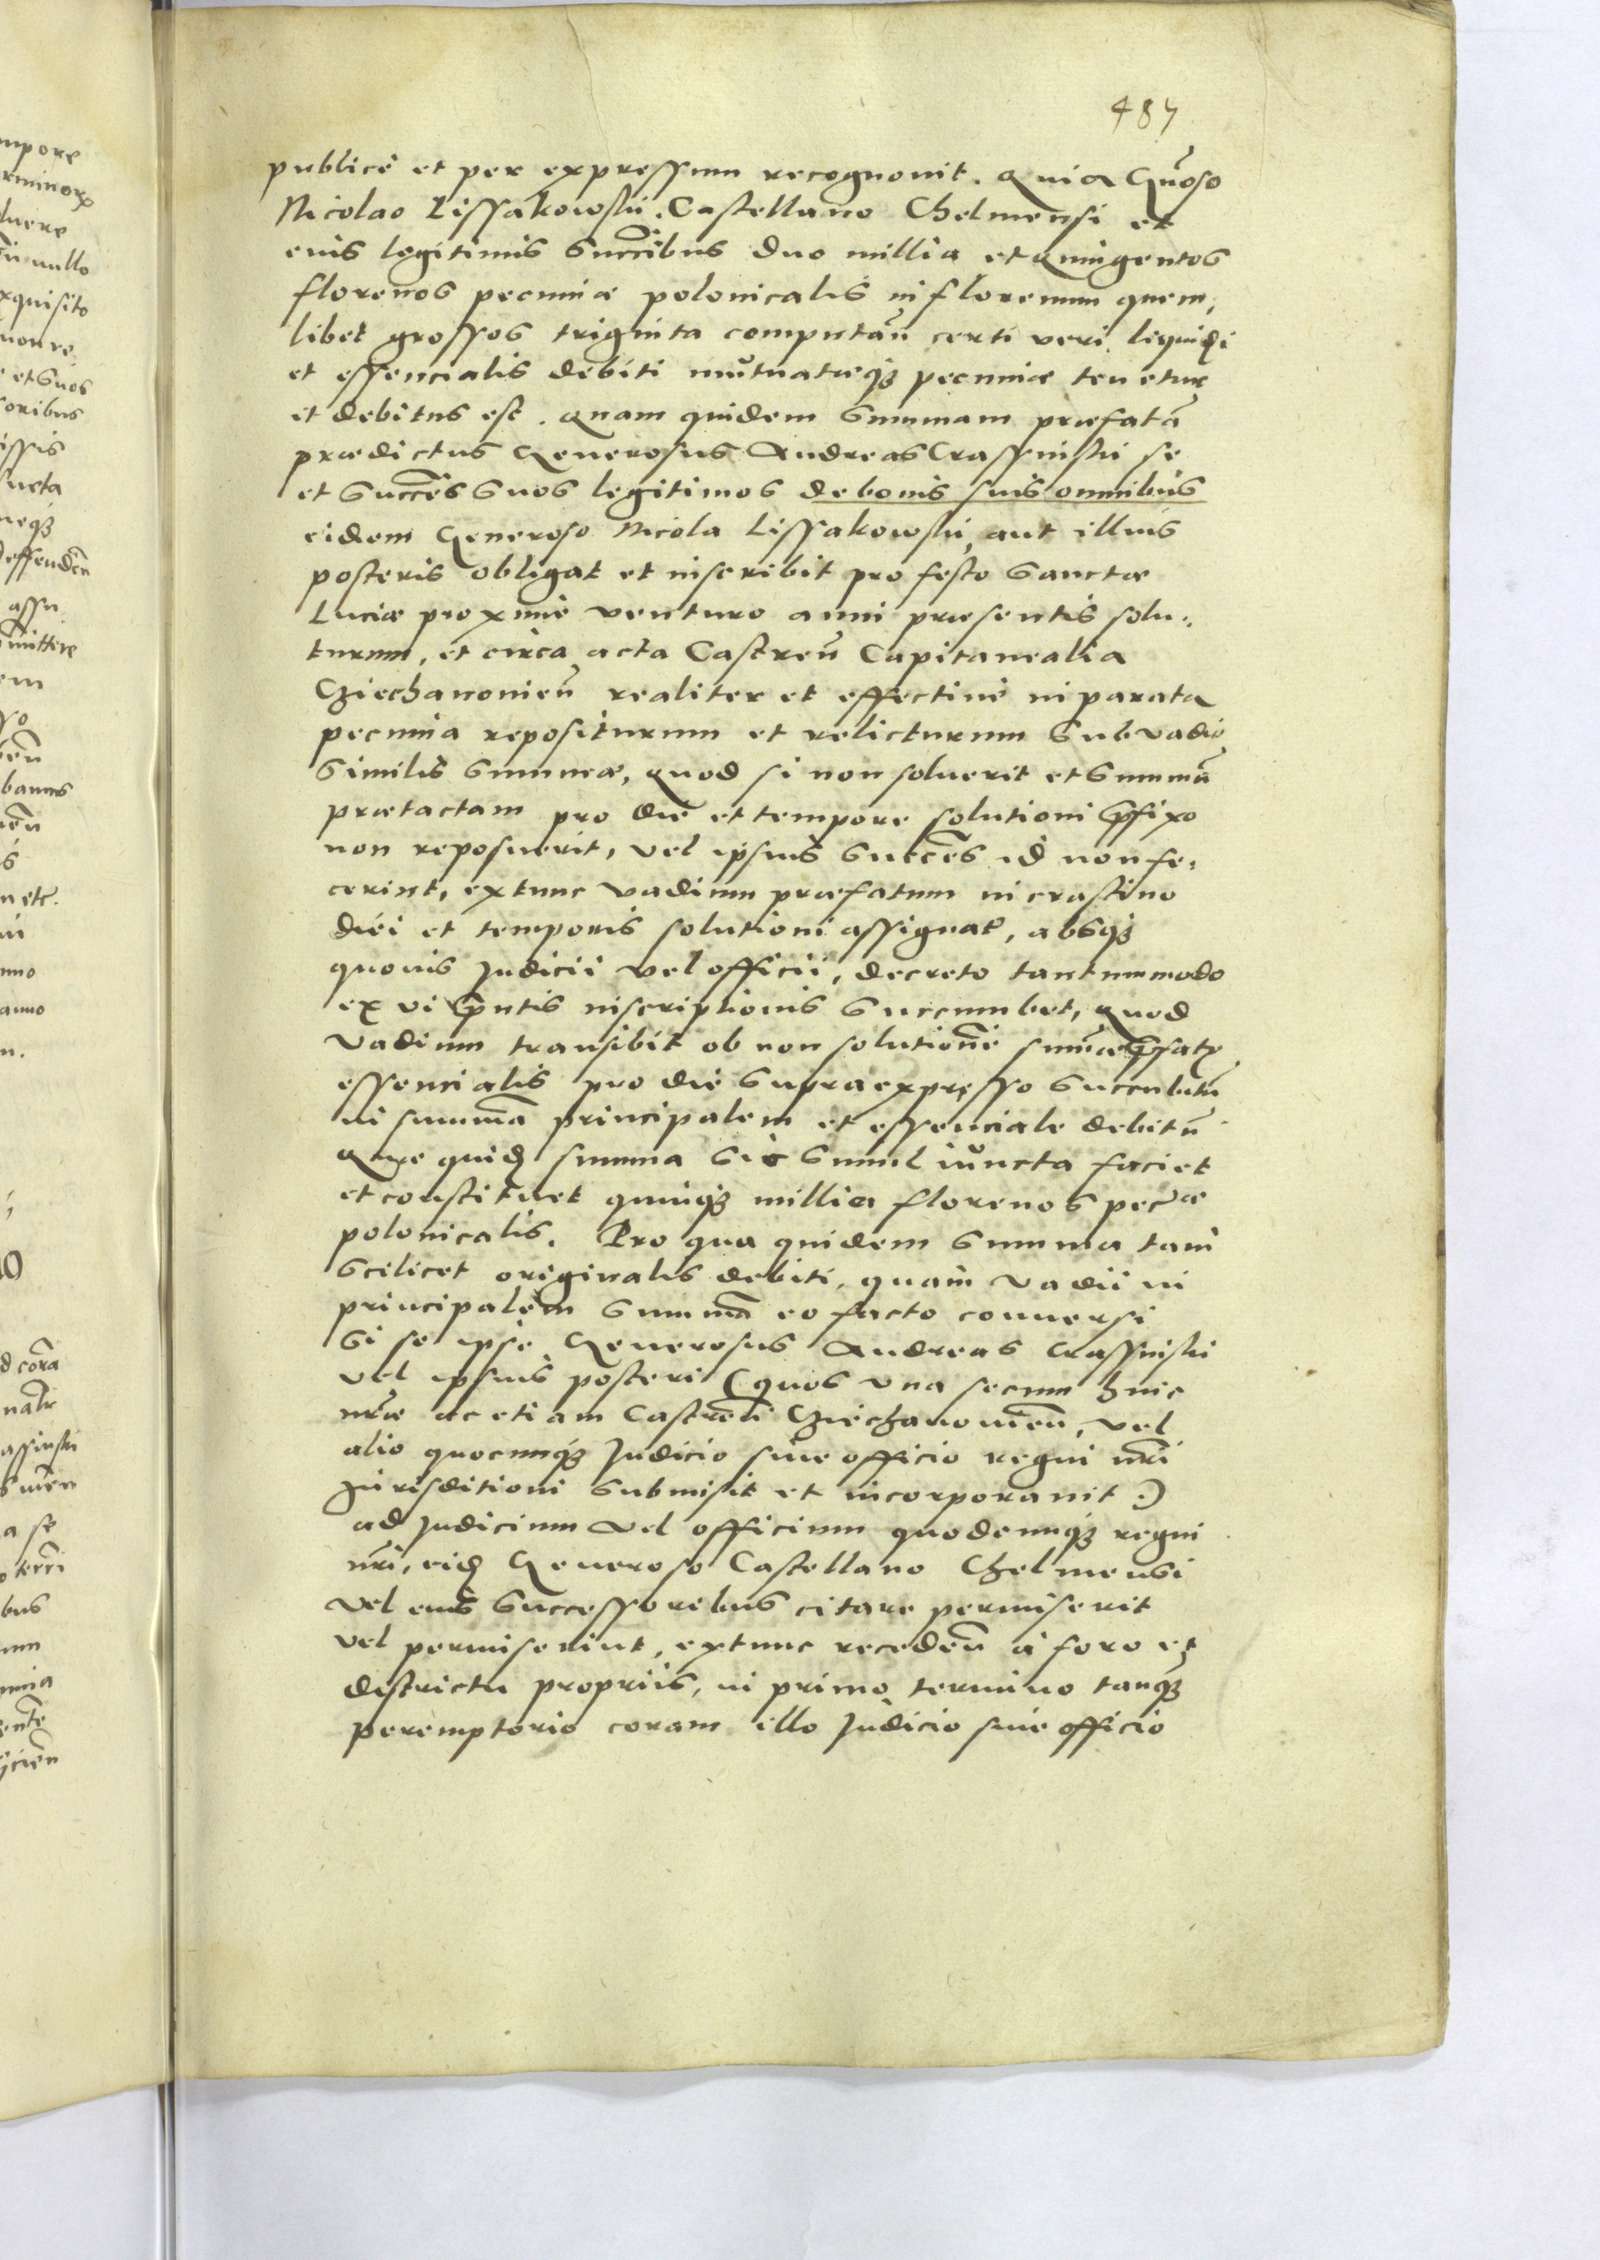 487
publicè et per expressum recognovit. Quia Gñoso
Nicolao Lissakowski Castellano Chelmensi et
eius legitimis Succribus duo millia et quingentos
florenos pecuniæ polonicalis in florenum quem,
libet grossos triginta computañ certi veri liquidi
et essencialis debiti mutuatæq3 pecuniæ tenetur
et debitus est. Quam quidem Summam præfatã
prædictus Generosus Andreas Crassinski se
et Succes Suos legitimos de bonis suis omnibus
eidem Generoso Nicola Lissakowski, aut illius
posteris obligat et inscribit pro festo Sanctæ
Luciæ proxime venturo anni præsentis solu,,
turum, et circa acta Castreñ Capitanealia
Cziechanovieñ realiter et effectiuè in parata
pecunia repositurum et relicturum Sub vadio
Similis Summæ, quod si non soluerit et Summã
prætactam pro die et tempore solutioni p̃fixo
non reposuerit, vel ipsius Succes id non fe,
cerint, extunc vadium præfatum in crastino
diei et temporis solutioni assignat̃, absq3
quouis Judicii vel officii, decreto tantummodo
ex vi p̃ntis inscriptionis Succumbet, quod
vadium transibit ob non solutionẽ sum̃æ p̃fatæ
essencialis pro die Supra expresso Succubitũ
in summã principalem et essenciale debitũ
Quæ quid3 summa Sic Simul iuncta faciet
et constituet quinq3 millia florenos pec̃æ
polonicalis. Pro qua quidem Summa tam
Scilicet originalis debiti, quam vadii in
principalem Summã eo facto conuersi
Si se ipse Generosus Andreas Crassinski
vel ipsius posteri (quos vna secum huic
nr̃æ ac etiam Castreñ Cziechanovieñ, vel
alio quocunq3 Judicio siue officio regni nr̃i
Jurisditioni Submisit et incorporauit.)
ad Judicium vel officium quodcunq3 regni
nr̃i, eid3 Generoso Castellano Chelmensi
vel eius Successoribus citare permiserit
vel permiserint, extunc recedeñ à foro et
districtu propriis, in primo termino tanq3
peremptorio coram illo Judicio siue officio